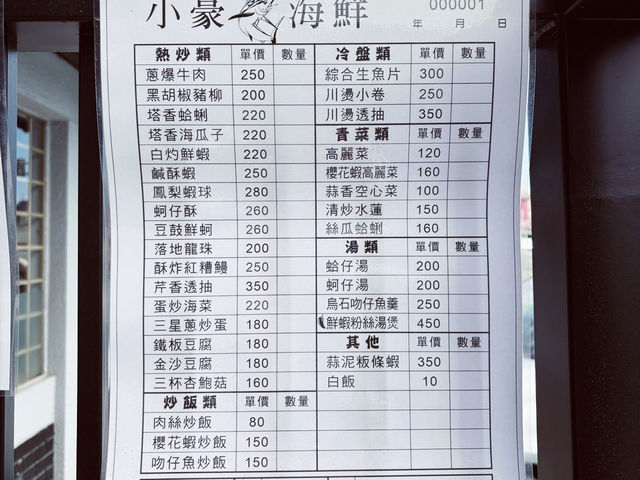 小豪海鮮
000001
年 月 日
熱炒類 單價 數量
蔥爆牛肉 250
黑胡椒豬柳 200
塔香蛤蜊 220
塔香海瓜子 220
白灼鮮蝦 220
鹹酥蝦 250
鳳梨蝦球 280
蚵仔酥 260
豆鼓鮮蚵 260
落地龍珠 200
酥炸紅糟鰻 250
芹香透抽 350
蛋炒海菜 220
三星蔥炒蛋 180
鐵板豆腐 180
金沙豆腐 180
三杯杏鮑菇 160
炒飯類 單價 數量
肉絲炒飯 80
櫻花蝦炒飯 150
吻仔魚炒飯 150
冷盤類 單價 數量
綜合生魚片 300
川燙小卷 250
川燙透抽 350
青菜類 單價 數量
高麗菜 120
櫻花蝦高麗菜 160
蒜香空心菜 100
清炒水蓮 150
絲瓜蛤蜊 160
湯類 單價 數量
蛤仔湯 200
蚵仔湯 200
烏石吻仔魚羹 250
鮮蝦粉絲湯煲 450
其他 單價 數量
蒜泥粄條蝦 350
白飯 10